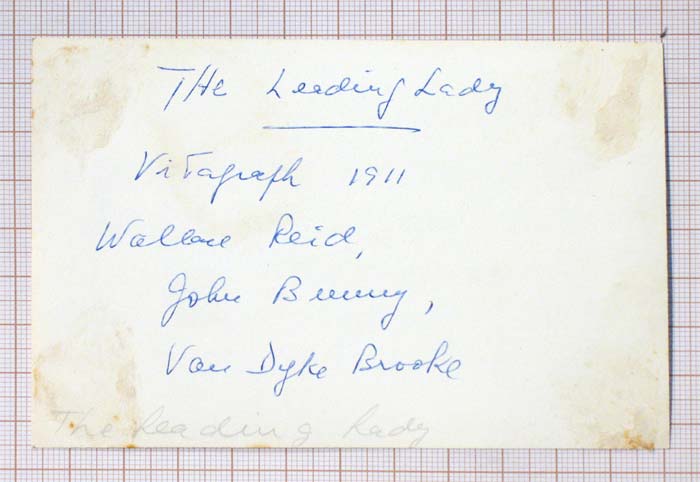 THe Leading Lady
Vitagraph 1911
Wallace Reid,
John Bunny,
Van Dyke Brooke
The Leading Lady